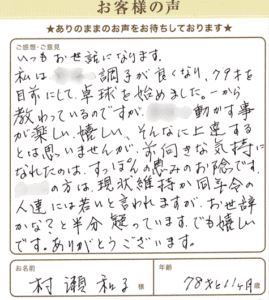 お客様の声
★ありのままのお声をお待ちしております★
ご感想・ご意見
いつもお世話になります。
私は 調子が良くなり、クタキを
目前にして、卓球を始めました。一から
教わっているのですが、 動かす事
が楽しい、嬉しい、そんなに上達する
とは思いませんが、前向きな気持に
なれたのは、すっぽんの恵みのお陰です。
の方は、現状維持か同年令の
人達には若いと言われますが、お世辞
かな?と半分疑っています。でも嬉しい
です。ありがとうございます。
お名前
村瀬和子 様
年齢
78才と11ヶ月 歳